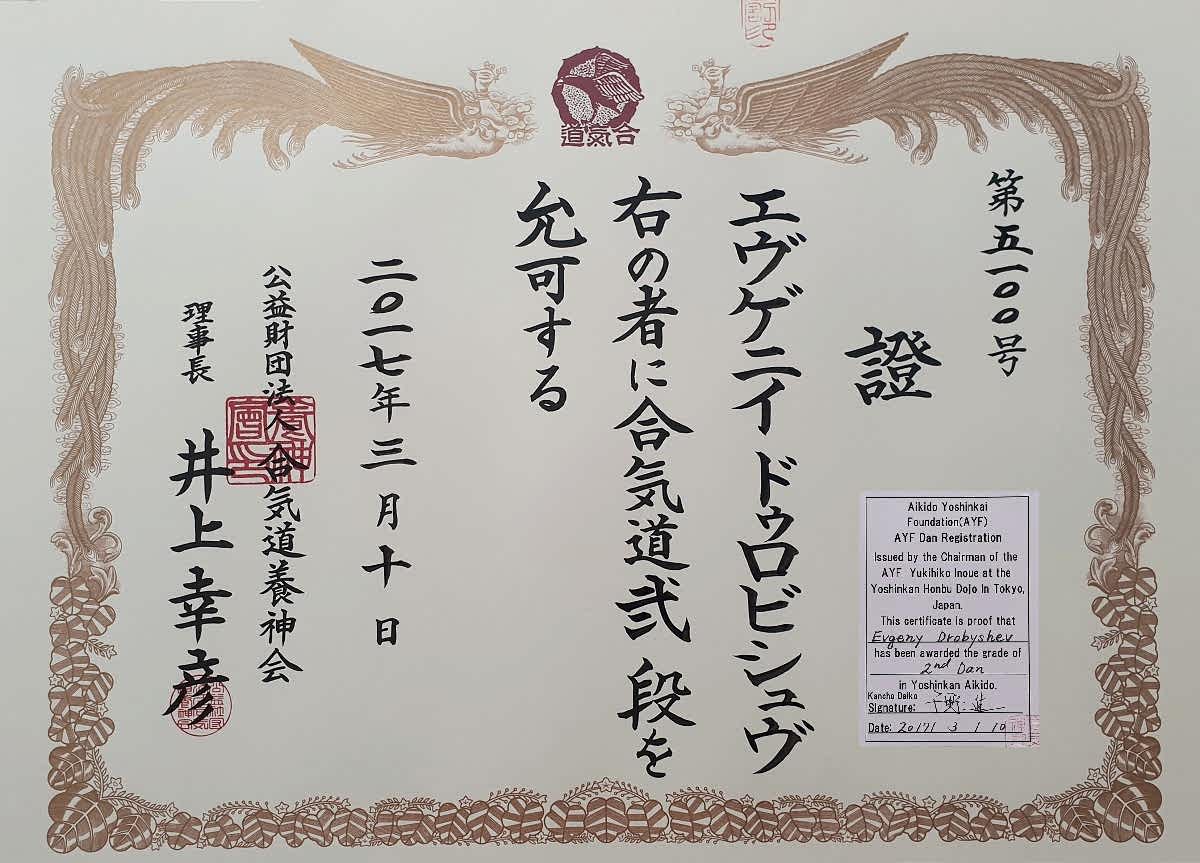 合氣道
第五一〇〇号
證
エヴゲニイ ドゥロビシュヴ
右の者に合気道弐段を
允可する
二〇一七年三月十日
公益財団法人 合気道養神会
理事長 井上幸彦
Aikido Yoshinkai
Foundation(AYF)
AYF Dan Registration
Issued by the Chairman of the
AYF Yukihiko Inoue at the
Yoshinkan Honbu Dojo In Tokyo,
Japan.
This certificate is proof that
Evgeny Drobyshev
has been awarded the grade of
2nd Dan
in Yoshinkan Aikido.
Kancho Daiko
Signature:
Date: 2017/ 3 / 10